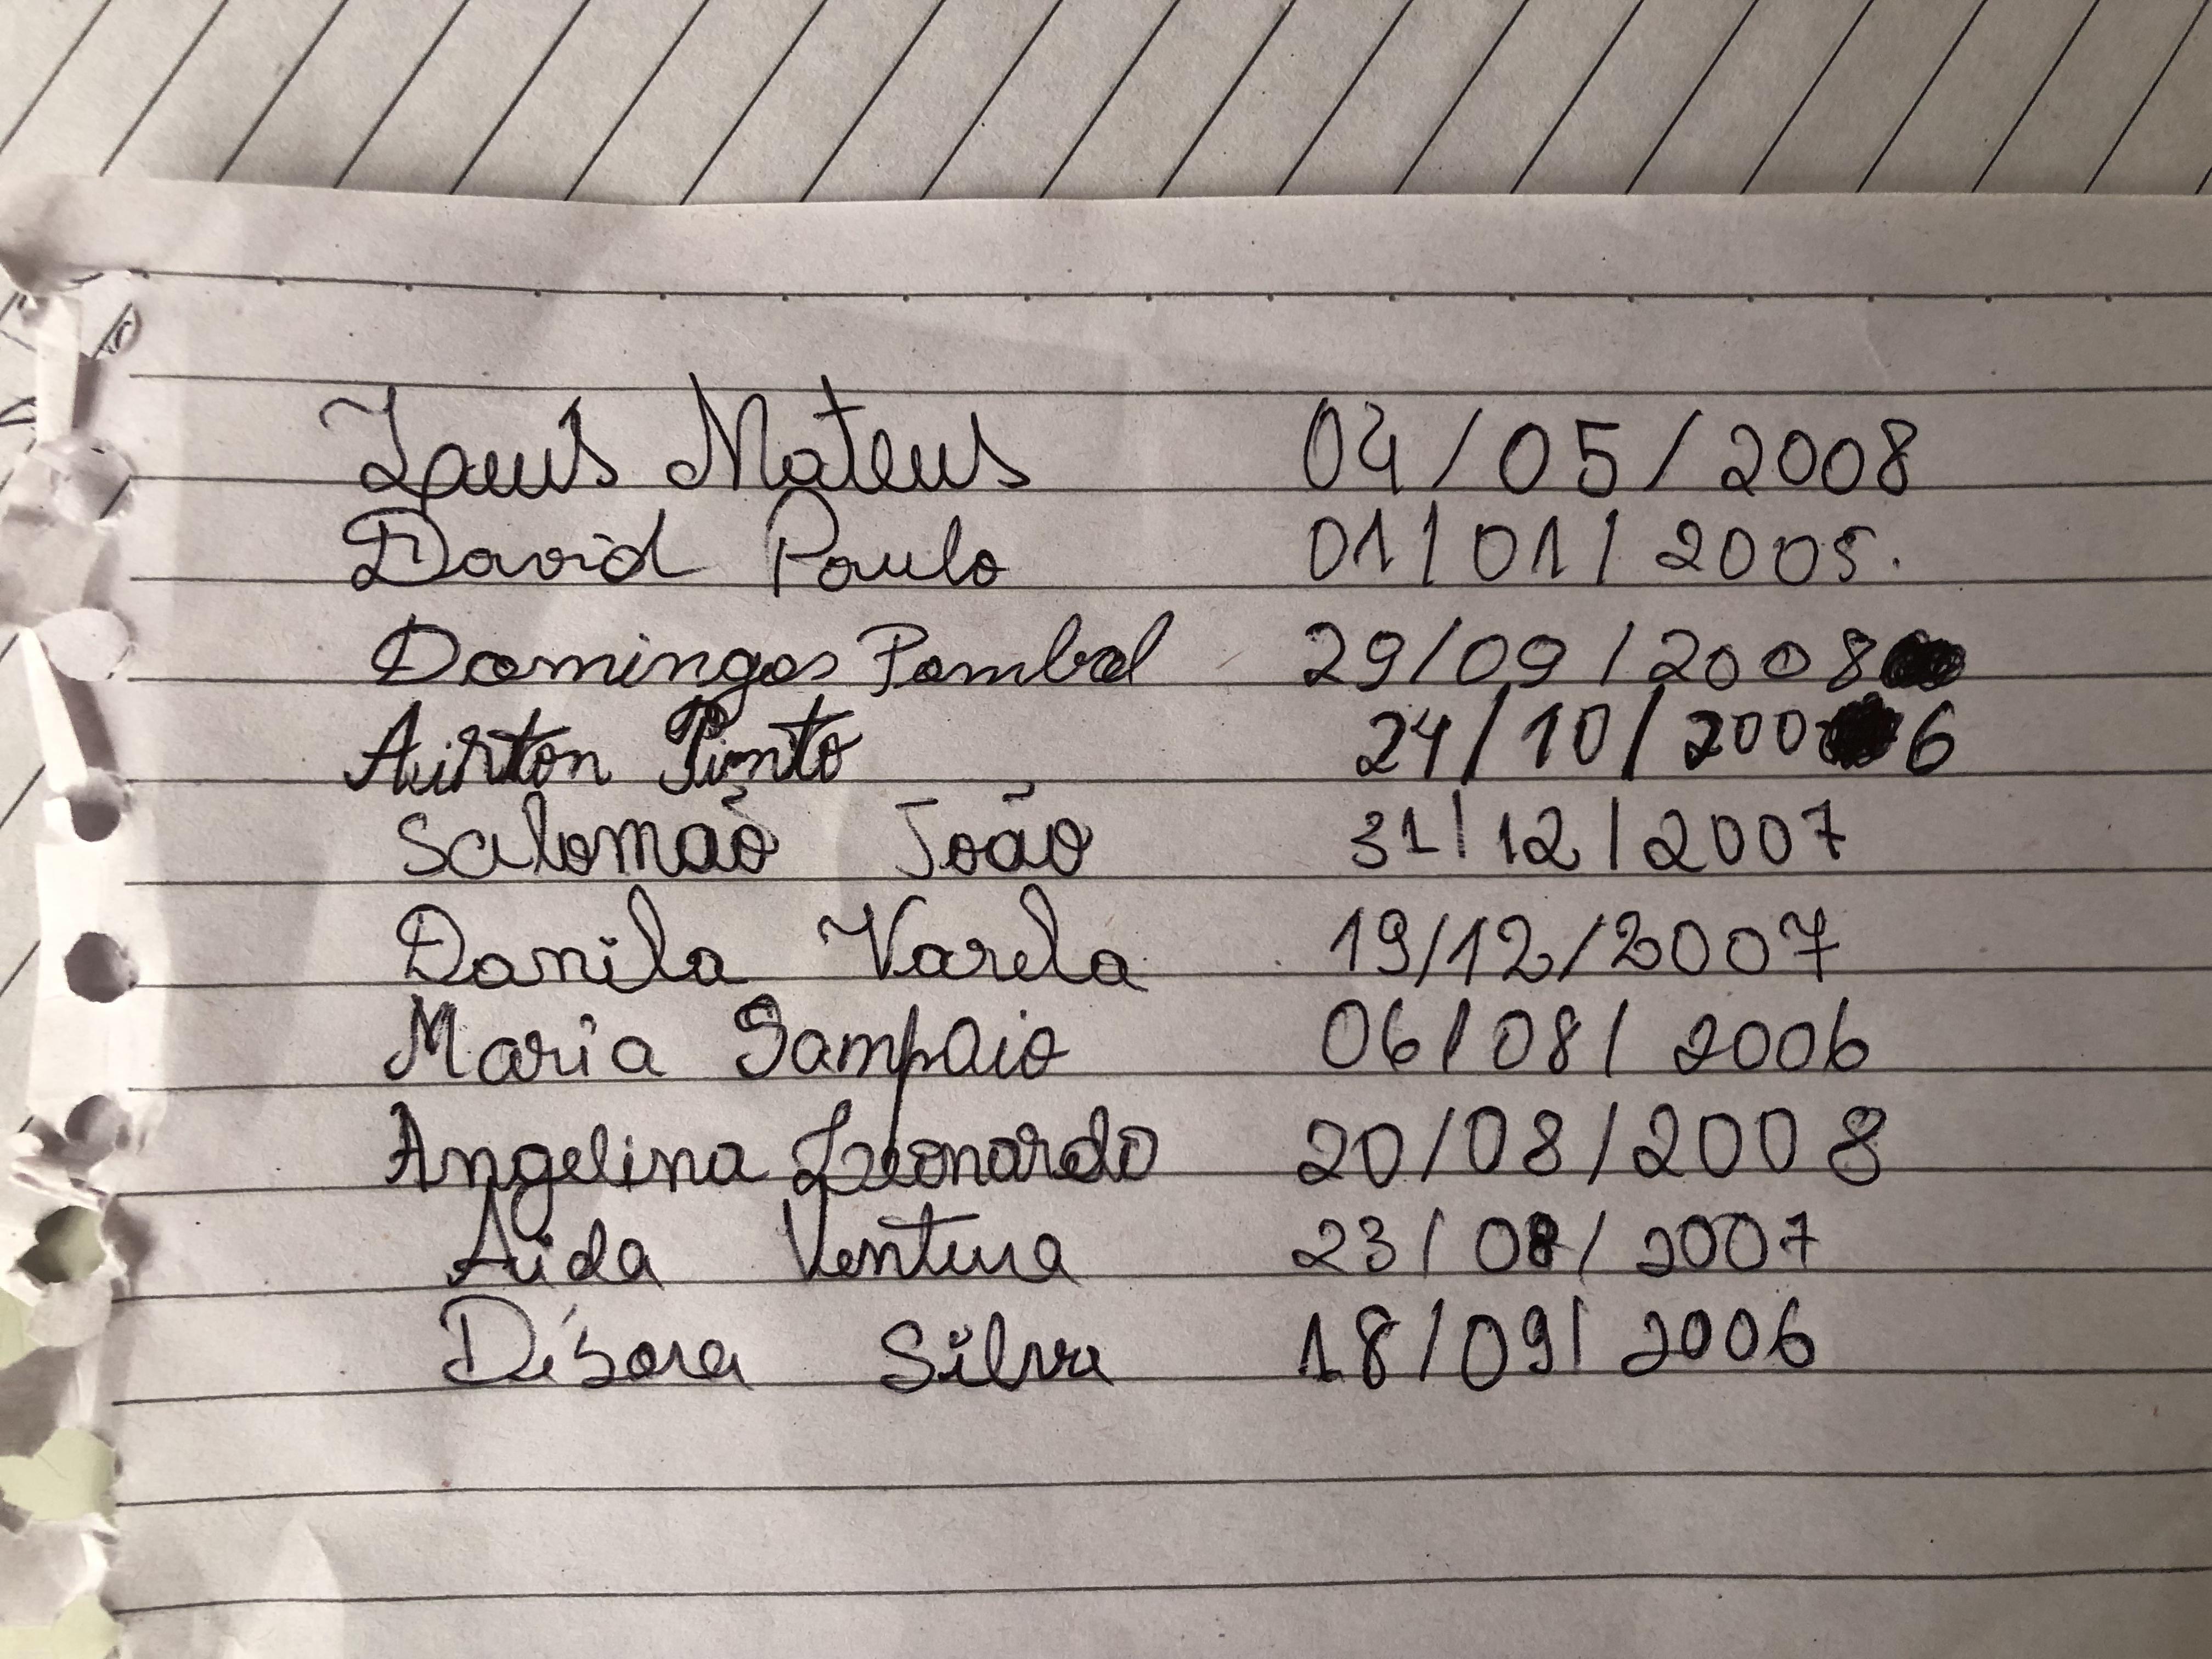 Mateus 04/05/2008
David Paulo 01/01/2005.
Domingos Pombal 29/09/2008
Airton Pinto 24/10/2006
Salomão João 31/12/2007
Danila Varela 19/12/2007
Maria Sampaio 06/08/2006
Angelina Leonardo 20/08/2008
Aida Ventura 23/08/2007
Débora Silva 18/09/2006